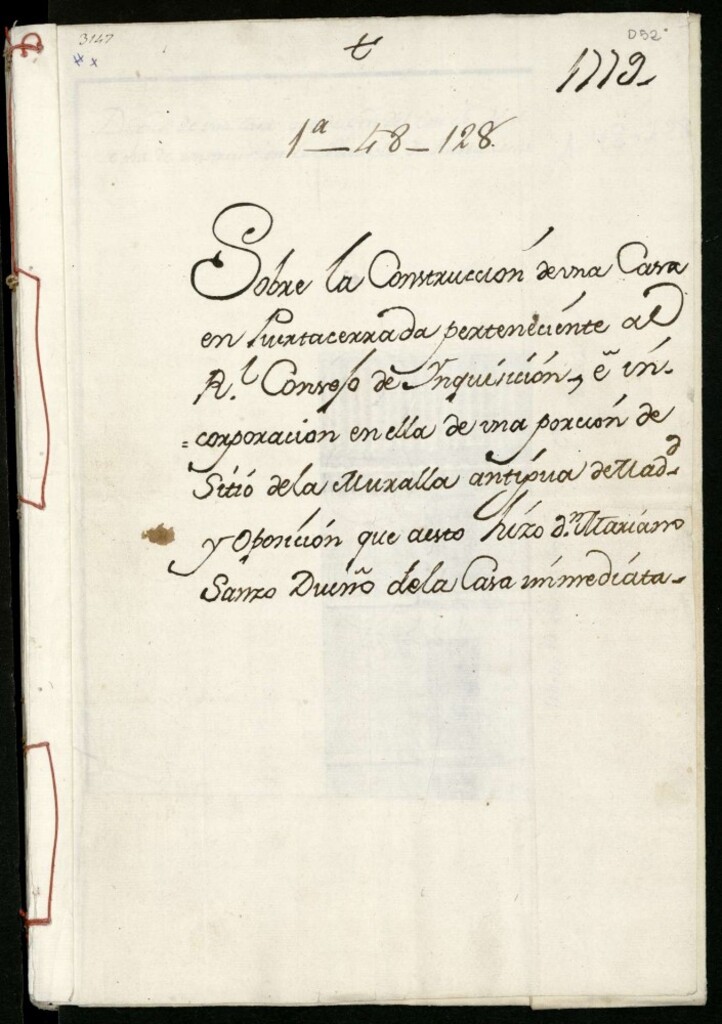 3147
D92
t
1779
1ª-48-128.
Sobre la Construccion de vna Casa
en Puertacerrada perteneciente al
R.l Consejo de Ynquisicion, é in-
=corporacion en ella de vna porcion de
Sitio de la Muralla antigua de Mad.d
y Oposicion que aesto hizo d.n Mariano
Sanzo Dueño dela Casa immediata-